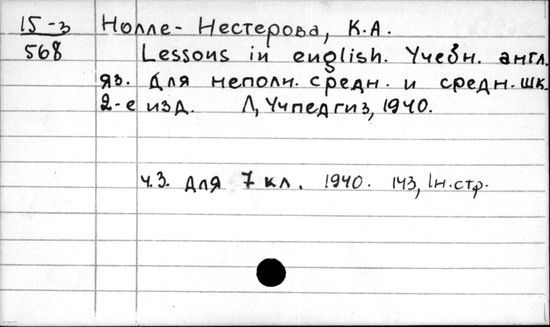 15-3 Нолле-Нестерова, К.А.
568 Lessons in english. Учебн. англ.
яз. для неполн. средн. и средн. шк.
2-е изд. Л, Учпедгиз, 1940.
ч.3. для 7 кл. 1940. 143, 1н.стр.